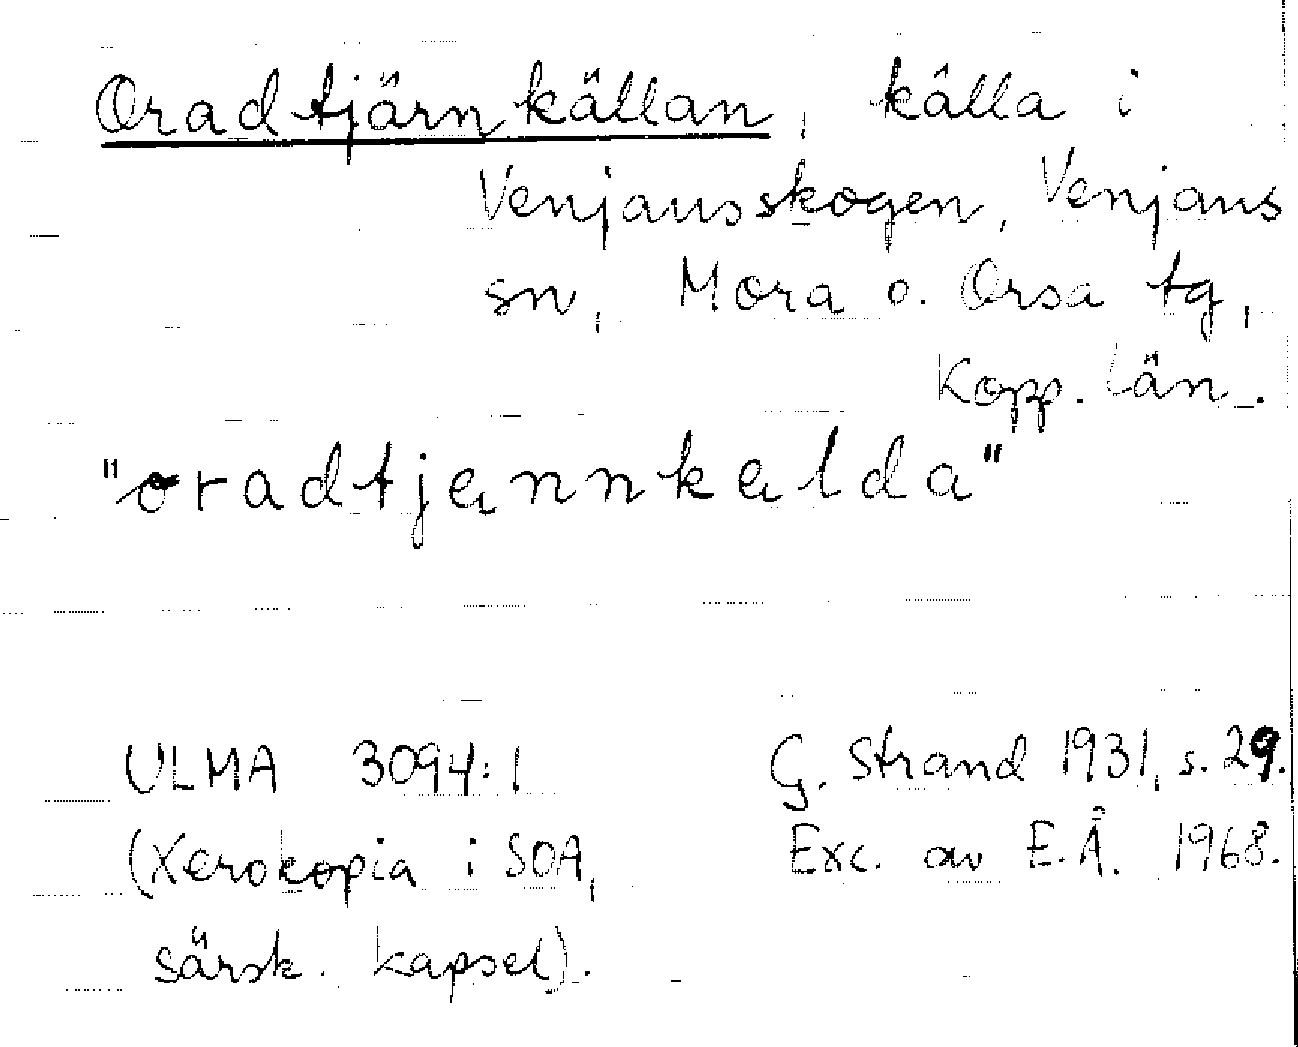 Oradtjärnkällan, källa i
Venjansskogen, Venjans
sn, Mora o. Orsa tg,
Kopp. län.
"oradtjännkälda"
ULMA 3094:1 G. Strand 1931, s. 29.
(Xerokopia i SOA, Exc. av E.Å. 1968.
särsk. kapsel).